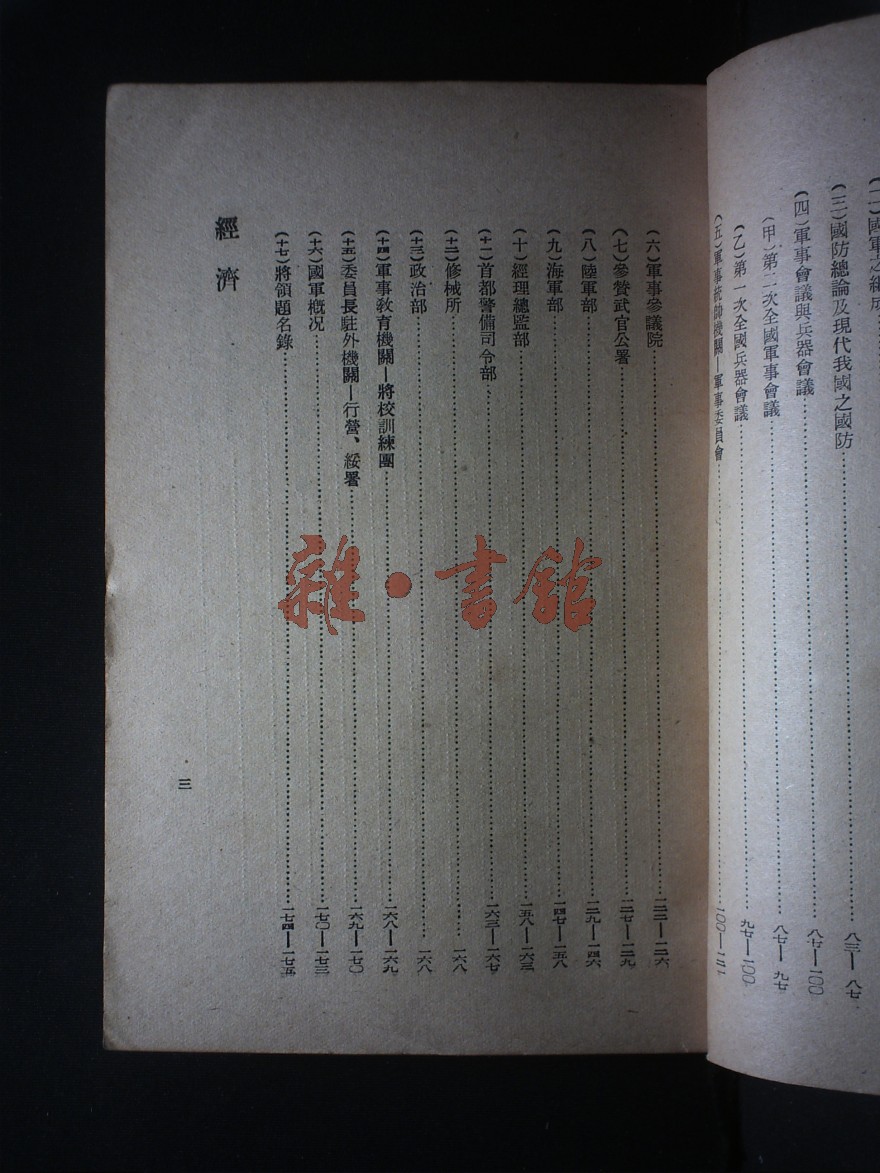 (三)國防總論及現代我國之國防……八三—八七
(四)軍事會議與兵器會議……八七—一〇〇
(甲)第二次全國軍事會議……八七—九七
(乙)第一次全國兵器會議……九七—一〇〇
(五)軍事統帥機關—軍事委員會
(六)軍事參議院……一二二—一二六
(七)參贊武官公署……一二七—一二九
(八)陸軍部……一二九—一四六
(九)海軍部……一四七—一五八
(十)經理總監部……一五八—一六三
(十一)首都警備司令部……一六三—一六七
(十二)修械所……一六八
(十三)政治部……一六八
(十四)軍事敎育機關—將校訓練團……一六八—一六九
(十五)委員長駐外機關—行營、綏署……一六九—一七〇
(十六)國軍概况……一七〇—一七三
(十七)將領題名錄……一七四—一七五
經濟
三
雜·書館